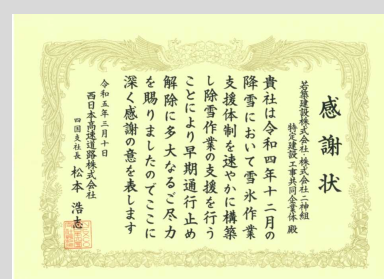 感謝状
若築建設株式会社・株式会社二神組
特定建設工事共同企業体 殿
貴社は令和四年十二月の
降雪において雪氷作業
支援体制を速やかに構築
し除雪作業の支援を行う
ことにより早期通行止め
解除に多大なるご尽力
を賜りましたのでここに
深く感謝の意を表します
令和五年三月十日
西日本高速道路株式会社
四国支社長 松本 浩志